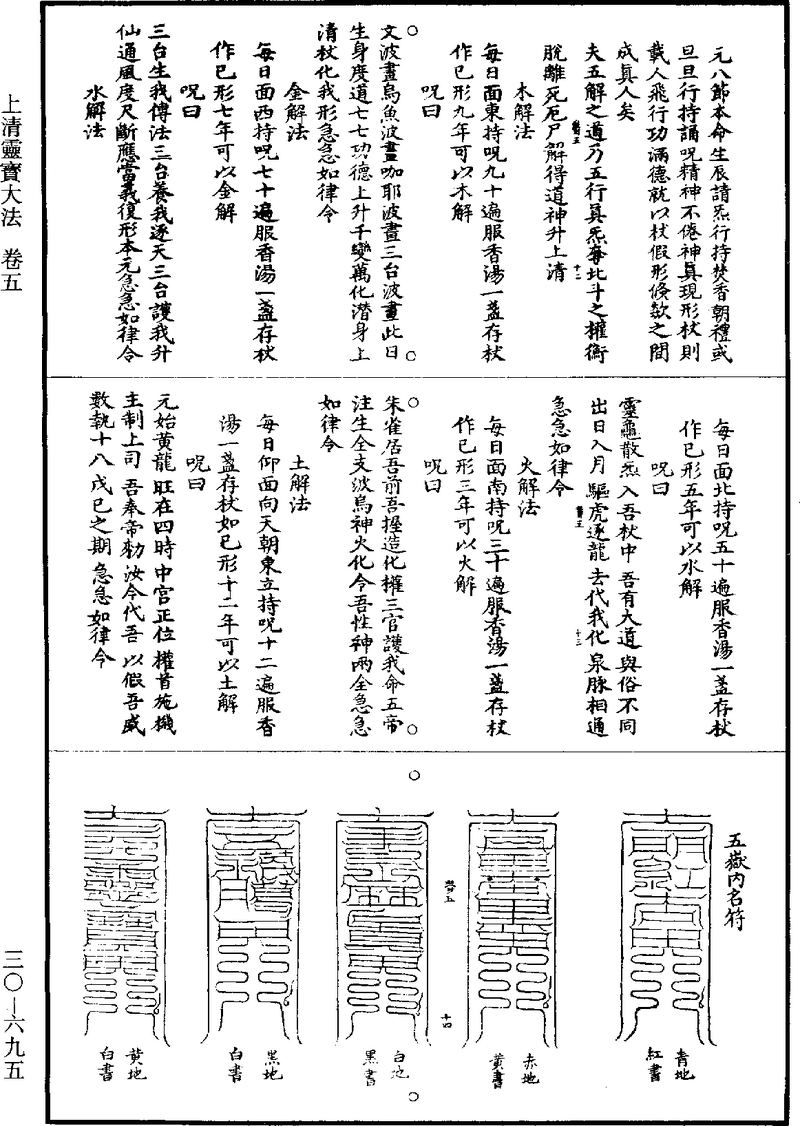 上清靈寶大法　卷五
三〇—六九五
元八節本命生辰請炁行持焚香朝禮或
旦旦行持誦呪精神不倦神真現形杖則
載人飛行功滿德就以杖假形倏欻之間
成真人矣
夫五解之道乃五行真炁奪北斗之權衡
脫離死厄尸解得道神升上清
十二
木解法
每日面東持呪九十遍服香湯一盞存杖
作已形九年可以木解
呪曰
文波畫烏魚波畫咖耶波畫三台波畫此日
生身度道七七功德上升千變萬化潛身上
清杖化我形急急如律令
金解法
每日面西持呪七十遍服香湯一盞存杖
作已形七年可以金解
呪曰
三台生我傳法三台養我逐天三台護我升
仙通風度尺斷應當義復形本元急急如律令
水解法
每日面北持呪五十遍服香湯一盞存杖
作已形五年可以水解
呪曰
靈龜散炁入吾杖中吾有大道與俗不同
出日入月驅虎逐龍去代我化泉脉相通
十三
急急如律令
火解法
每日面南持呪三十遍服香湯一盞存杖
作已形三年可以火解
呪曰
朱雀居吾前吾握造化權三官護我命五帝
注生全支波烏神火化令吾性神兩全急急
如律令
土解法
每日仰面向天朝東立持呪十二遍服香
湯一盞存杖如已形十二年可以土解
呪曰
元始黃龍旺在四時中宮正位權首施機
主制上司吾奉帝勑汝今代吾以假吾威
數執十八戊已之期急急如律令
五嶽內名符
青地
紅書
赤地
黃書
十四
白地
黑書
黑地
白書
黃地
白書